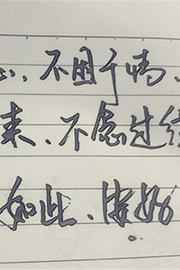 不困于情、
来、不念过
如此、安好